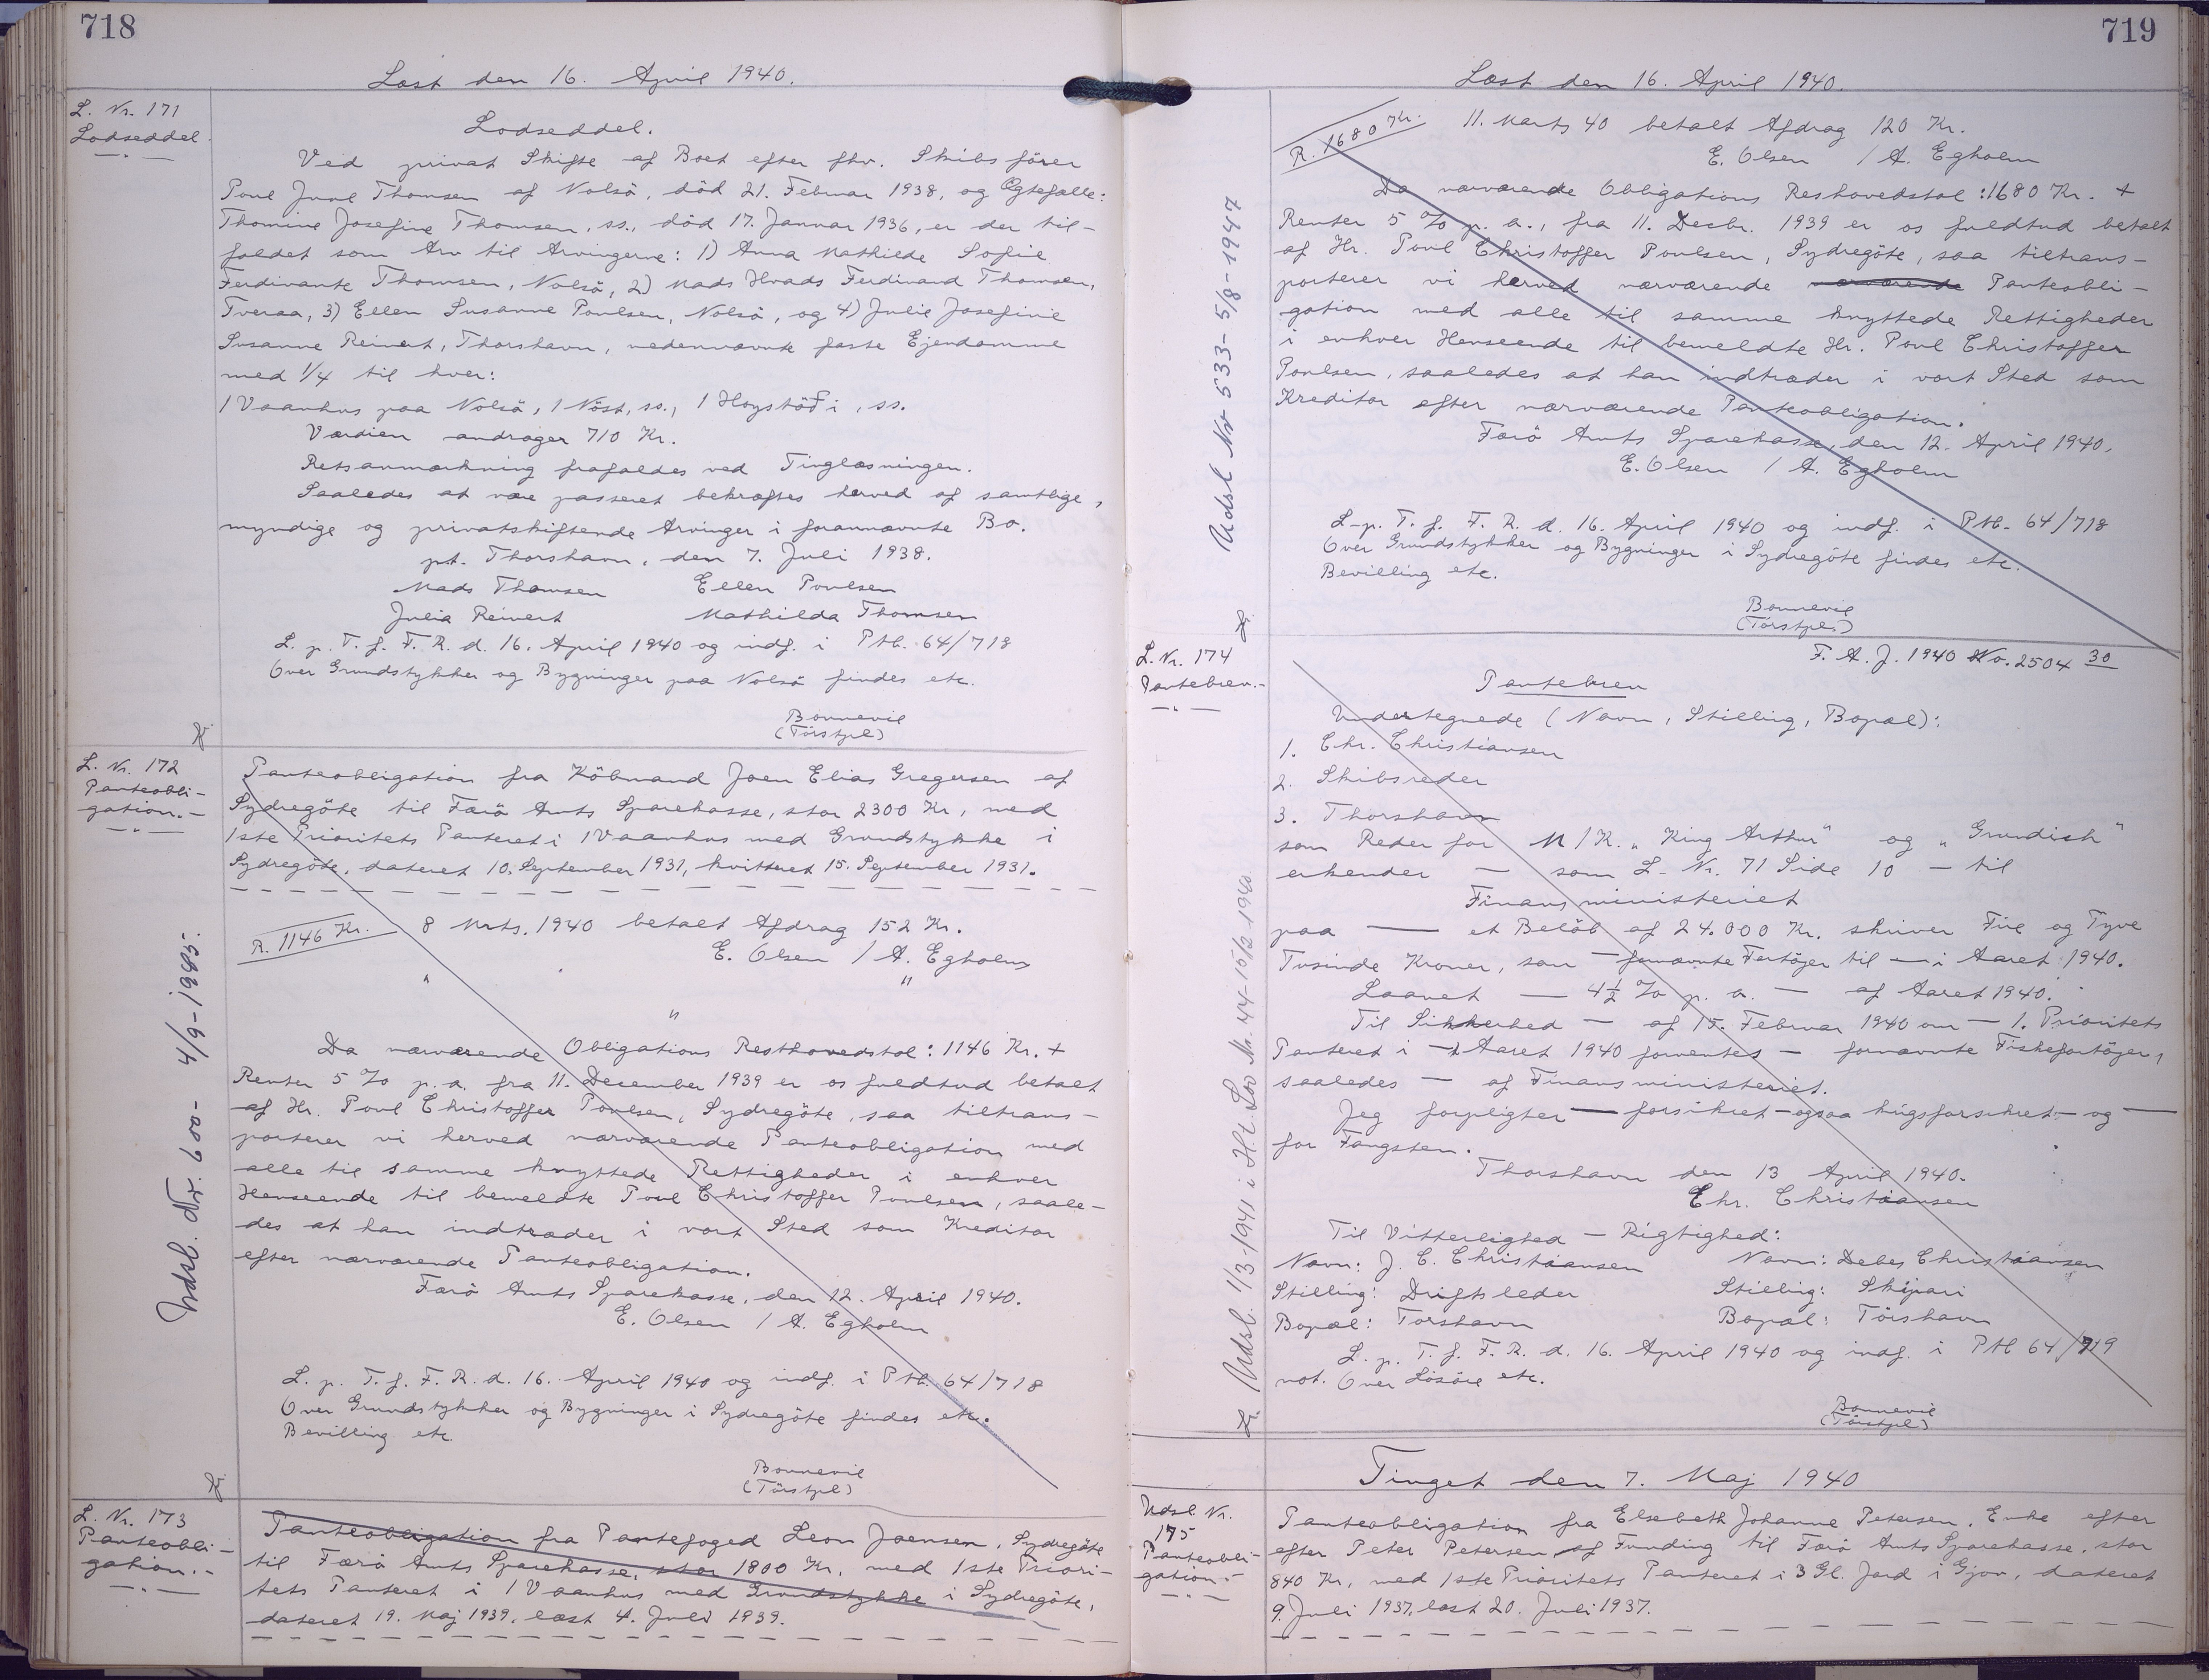 718
Læst den 16. April 1940.
L. Nr. 171
Lodseddel.
Lodseddel.
Ved privat Skifte af Boet efter fhv. Skibsförer
Poul Juul Thomsen af Nolsö, död 21. Februar 1938, og Ægtefælle:
Thomine Josefine Thomsen, ss., död 17. Januar 1936, er der til-
faldet som Arv til Arvingerne: 1) Anna Mathilde Sofie
Ferdinante Thomsen, Nolsö, 2) Mads Hvads Ferdinand Thomsen,
Tveraa, 3) Ellen Susanne Poulsen, Nolsö, og 4) Julie Josefine
Susanne Reinert, Thorshavn, nedennævnte faste Ejendomme
med 1/4 til hver:
1 Vaanhus paa Nolsö, 1 Nöst, ss., 1 Hoystöð i, ss.
Værdien andrager 710 Kr.
Retsanmærkning frafaldes ved Tinglæsningen.
Saaledes at være passeret bekræftes herved af samtlige,
myndige og privatskiftende Arvinger i forannævnte Bo.
pt. Thorshavn, den 7. Juli 1938.
Mads Thomsen Ellen Poulsen
Julia Reinert Mathilda Thomsen
L. p. T. f. F. R. d. 16. April 1940 og indf. i Ptb. 64/718
Over Grundstykker og Bygninger paa Nolsö findes etc.
Bonnevie
(Törstpl)
L. Nr. 172
Panteobli-
gation.-
Panteobligation fra Köbmand Joen Elias Gregersen af
Sydregöte til Færö Amts Sparekasse, stor 2300 Kr, med
1ste Prioritets Panteret i 1 Vaanhus med Grundstykke i
Sydregöte, dateret 10. September 1931, kvitteret 15. September 1931.
R. 1146 Kr. 8 Mrts. 1940 betalt Afdrag 152 Kr.
E. Olsen / A. Egholm
" "
"
Da nærværende Obligations Resthovedstol: 1146 Kr. +
Renter 5 % p.a. fra 11. December 1939 er os fuldtud betalt
af Hr. Poul Christoffer Poulsen, Sydregöte, saa tiltrans-
porterer vi herved nærværende Panteobligation med
alle til samme knyttede Rettigheder i enhver
Henseende til bemeldte Poul Christoffer Poulsen, saale-
des at han indtræder i vort Sted som Kreditor
efter nærværende Panteobligation.
Færö Amts Sparekasse, den 12. April 1940.
E. Olsen / A. Egholm
L. p. T. f. F. R. d. 16. April 1940 og indf. i Ptb. 64/718
Over Grundstykker og Bygninger i Sydregöte findes etc.
Bevilling etc.
Bonnevie
(Törstpl)
Udsl. Nr. 600- 4/9-1985.
L. Nr. 173
Panteobli-
gation.-
Panteobligation fra Pantefoged Leon Joensen, Sydregöte
til Færö Amts Sparekasse, stor 1800 Kr. med 1ste Priori-
tets Panteret i 1 Vaanhus med Grundstykke i Sydregöte,
dateret 19. Maj 1939, læst 4. Juli 1939.
719
Læst den 16. April 1940.
R. 1680 Kr. 11. Marts 40 betalt Afdrag 120 Kr.
E. Olsen / A. Egholm
Da nærværende Obligations Resthovedstol: 1680 Kr. +
Renter 5 % p. a., fra 11. Decbr. 1939 er os fuldtud betalt
af Hr. Poul Christoffer Poulsen, Sydregöte, saa tiltrans-
porterer vi herved nærværende nærværende Panteobli-
gation med alle til samme knyttede Rettigheder
i enhver Henseende til bemeldte Hr. Poul Christoffer
Poulsen, saaledes at han indtræder i vort Sted som
Kreditor efter nærværende Panteobligation.
Færö Amts Sparekasse, den 12. April 1940.
E. Olsen / A. Egholm
L. p. T. f. F. R. d. 16. April 1940 og indf. i Ptb. 64/718
Over Grundstykker og Bygninger i Sydregöte findes etc.
Bevilling etc.
Bonnevie
(Törstpl.)
Udsl Nr 533- 5/8-1947
L. Nr. 174
Pantebrev.-
F. A. J. 1940 No. 2504 30
Pantebrev
Undertegnede (Navn, Stilling, Bopæl):
1. Chr. Christiansen
2. Skibsreder
3. Thorshavn
som Reder for M/K. "King Arthur" og "Grundich"
erkender — som L. Nr. 71 Side 10 — til
Finansministeriet
paa — et Belöb af 24.000 Kr. skriver Fire og Tyve
Tusinde Kroner, som — fornævnte Fartöjer til — i Aaret 1940.
Laanet — 4½ % p. a. — af Aaret 1940.
Til Sikkerhed — af 15. Februar 1940 om — 1. Prioritets
Panteret i — i Aaret 1940 forventes — fornævnte Fiskefartöjer,
saaledes — af Finansministeriet.
Jeg forpligter — forsikret — ogsaa krigsforsikret — og —
for Fangsten.
Thorshavn den 13 April 1940.
Chr. Christiansen
Til Vitterlighed — Rigtighed:
Navn: J. C. Christiansen Navn: Debes Christiansen
Stilling: Driftsleder Stilling: Skipari
Bopæl: Torshavn Bopæl: Tórshavn
L. p. T. f. F. R. d. 16. April 1940 og indf. i Ptb 64/719
not. Over Lösöre etc.
Bonnevie
(Törstpl)
Udsl. 1/3-1941 i H.t. Lov Nr. 44-15/2 1940
Tinget den 7. Maj 1940
Udsl. Nr.
175
Panteobli-
gation.-
Panteobligation fra Elsebeth Johanne Petersen, Enke efter
efter Peter Petersen af Funding til Færö Amts Sparekasse, stor
840 Kr, med 1ste Prioritets Panteret i 3 Gl. Jord i Gjov, dateret
9. Juli 1937, læst 20. Juli 1937.